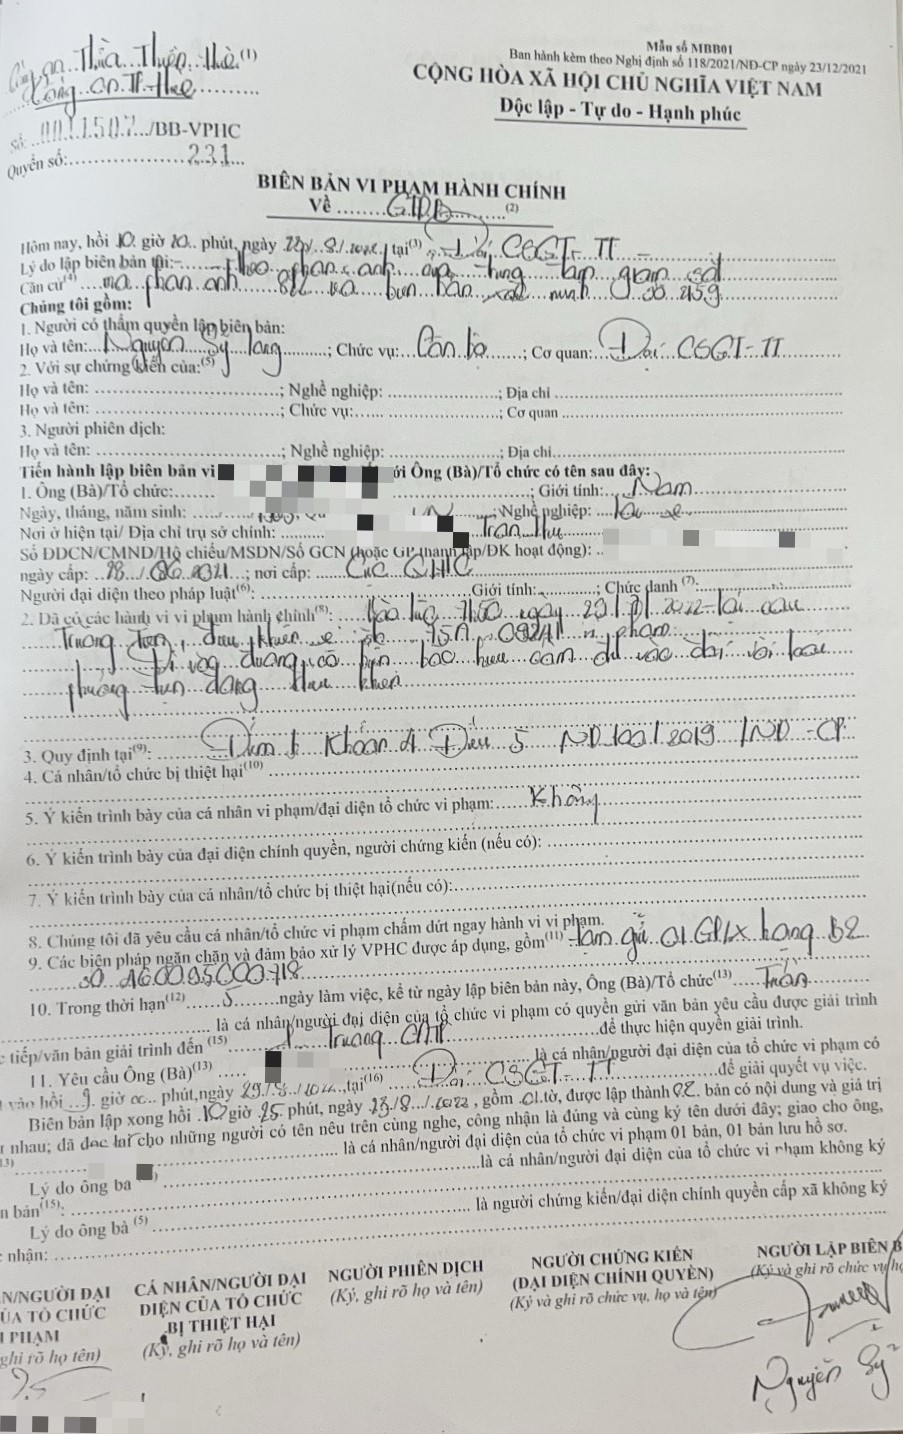 Mẫu số MBB01
Ban hành kèm theo Nghị định số 118/2021/NĐ-CP ngày 23/12/2021
Công an Thừa Thiên Huế (1)
CỘNG HÒA XÃ HỘI CHỦ NGHĨA VIỆT NAM
Độc lập - Tự do - Hạnh phúc
Số: 0011507/BB-VPHC
Quyển số: 231
BIÊN BẢN VI PHẠM HÀNH CHÍNH
Về GTĐB (2)
Hôm nay, hồi 10 giờ 20 phút, ngày 23/8/2022 tại(3) Đội CSGT-TT
Lý do lập biên bản tại:
Căn cứ(4)
Chúng tôi gồm:
1. Người có thẩm quyền lập biên bản:
Họ và tên: Nguyễn Sỹ; Chức vụ: Cán bộ; Cơ quan: Đội CSGT-TT
2. Với sự chứng kiến của:(5)
Họ và tên: ; Nghề nghiệp: ; Địa chỉ
Họ và tên: ; Chức vụ: ; Cơ quan
3. Người phiên dịch:
Họ và tên: ; Nghề nghiệp: ; Địa chỉ
Tiến hành lập biên bản vi Ông (Bà)/Tổ chức có tên sau đây:
1. Ông (Bà)/Tổ chức: ; Giới tính: Nam
Ngày, tháng, năm sinh: ; Nghề nghiệp: lái xe
Nơi ở hiện tại/ Địa chỉ trụ sở chính:
Số ĐDCN/CMND/Hộ chiếu/MSDN/Số GCN (hoặc GP thành lập/ĐK hoạt động):
ngày cấp: 28/06/2021; nơi cấp: Cục QLHC
Người đại diện theo pháp luật(6): Giới tính: ; Chức danh (7):
2. Đã có các hành vi vi phạm hành chính(8): Vào lúc ngày 2022 tại cầu
Trường Tiền, điều khiển xe ôtô vi phạm:
Đi vào đường có biển báo hiệu cấm đi vào đối với loại
phương tiện đang điều khiển
3. Quy định tại(9): Điểm Khoản 4 Điều 5 NĐ 100/2019/NĐ-CP
4. Cá nhân/tổ chức bị thiệt hại(10)
5. Ý kiến trình bày của cá nhân vi phạm/đại diện tổ chức vi phạm: Không
6. Ý kiến trình bày của đại diện chính quyền, người chứng kiến (nếu có):
7. Ý kiến trình bày của cá nhân/tổ chức bị thiệt hại(nếu có):
8. Chúng tôi đã yêu cầu cá nhân/tổ chức vi phạm chấm dứt ngay hành vi vi phạm.
9. Các biện pháp ngăn chặn và đảm bảo xử lý VPHC được áp dụng, gồm(11) tạm giữ 01 GPLX hạng B2
số
10. Trong thời hạn(12) 5 ngày làm việc, kể từ ngày lập biên bản này, Ông (Bà)/Tổ chức(13) Trần
là cá nhân/người đại diện của tổ chức vi phạm có quyền gửi văn bản yêu cầu được giải trình
tiếp/văn bản giải trình đến (15) để thực hiện quyền giải trình.
11. Yêu cầu Ông (Bà)(13) là cá nhân/người đại diện của tổ chức vi phạm có
vào hồi 9 giờ 00 phút,ngày 29/8/2022,tại(16) Đội CSGT-TT để giải quyết vụ việc.
Biên bản lập xong hồi 10 giờ 25 phút, ngày 23/8/2022, gồm 01 tờ, được lập thành 02 bản có nội dung và giá trị
nhau; đã đọc lại cho những người có tên nêu trên cùng nghe, công nhận là đúng và cùng ký tên dưới đây; giao cho ông,
là cá nhân/người đại diện của tổ chức vi phạm 01 bản, 01 bản lưu hồ sơ.
Lý do ông bà là cá nhân/người đại diện của tổ chức vi phạm không ký
bản(15):
Lý do ông bà (5) là người chứng kiến/đại diện chính quyền cấp xã không ký
nhận:
N/NGƯỜI ĐẠI
ỦA TỔ CHỨC
PHẠM
ghi rõ họ tên)
CÁ NHÂN/NGƯỜI ĐẠI
DIỆN CỦA TỔ CHỨC
BỊ THIỆT HẠI
(Ký, ghi rõ họ và tên)
NGƯỜI PHIÊN DỊCH
(Ký, ghi rõ họ và tên)
NGƯỜI CHỨNG KIẾN
(ĐẠI DIỆN CHÍNH QUYỀN)
(Ký và ghi rõ chức vụ, họ và tên)
NGƯỜI LẬP BIÊN B
(Ký và ghi rõ chức vụ, họ
Nguyễn Sỹ